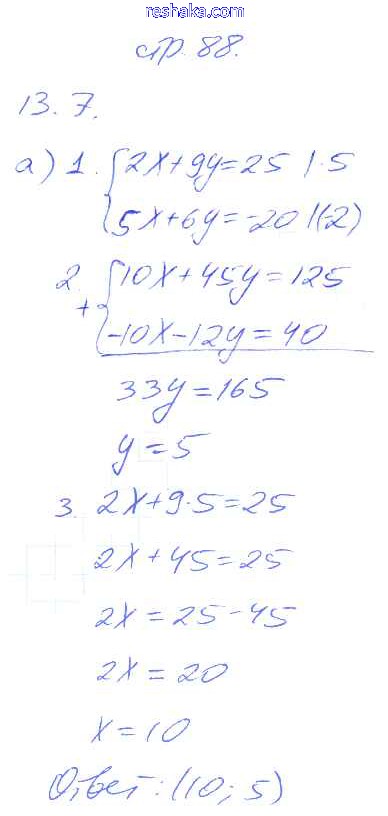 reshaka.com
стр. 88.
13.7.
а) 1. {2x+9y=25 |·5
5x+6y=-20 |(-2)
2. {10x+45y=125
+ -10x-12y=40
33y=165
y=5
3. 2x+9·5=25
2x+45=25
2x=25-45
2x=20
x=10
Ответ: (10; 5)